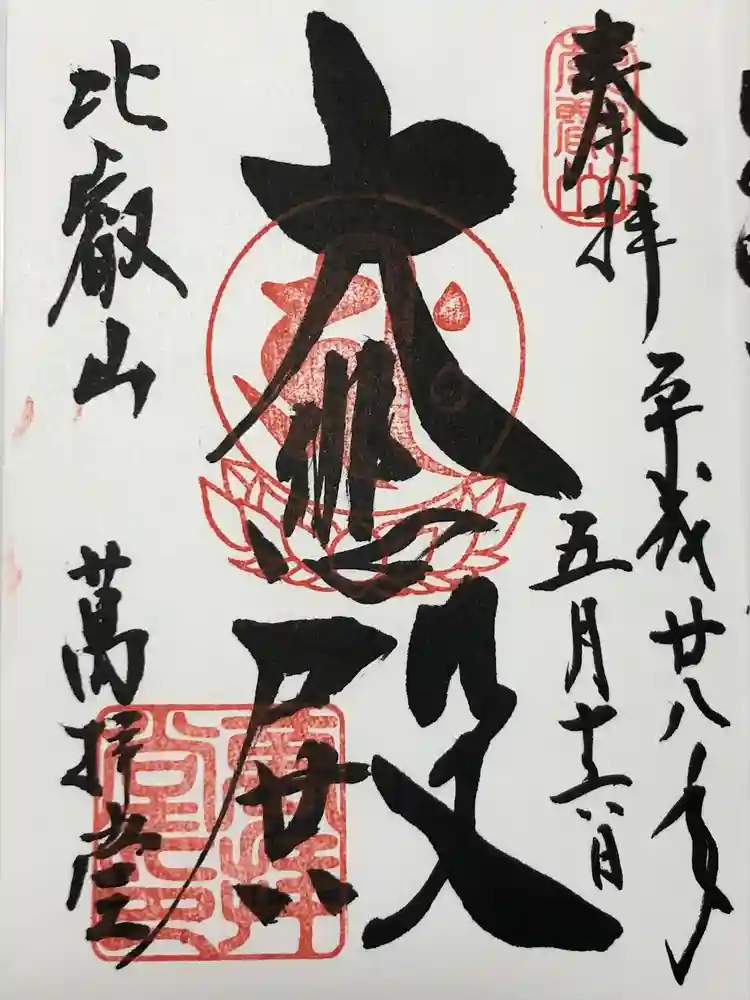 奉拝
平成廿八年
五月十六日
大悲殿
比叡山 萬拝堂
萬拝堂印